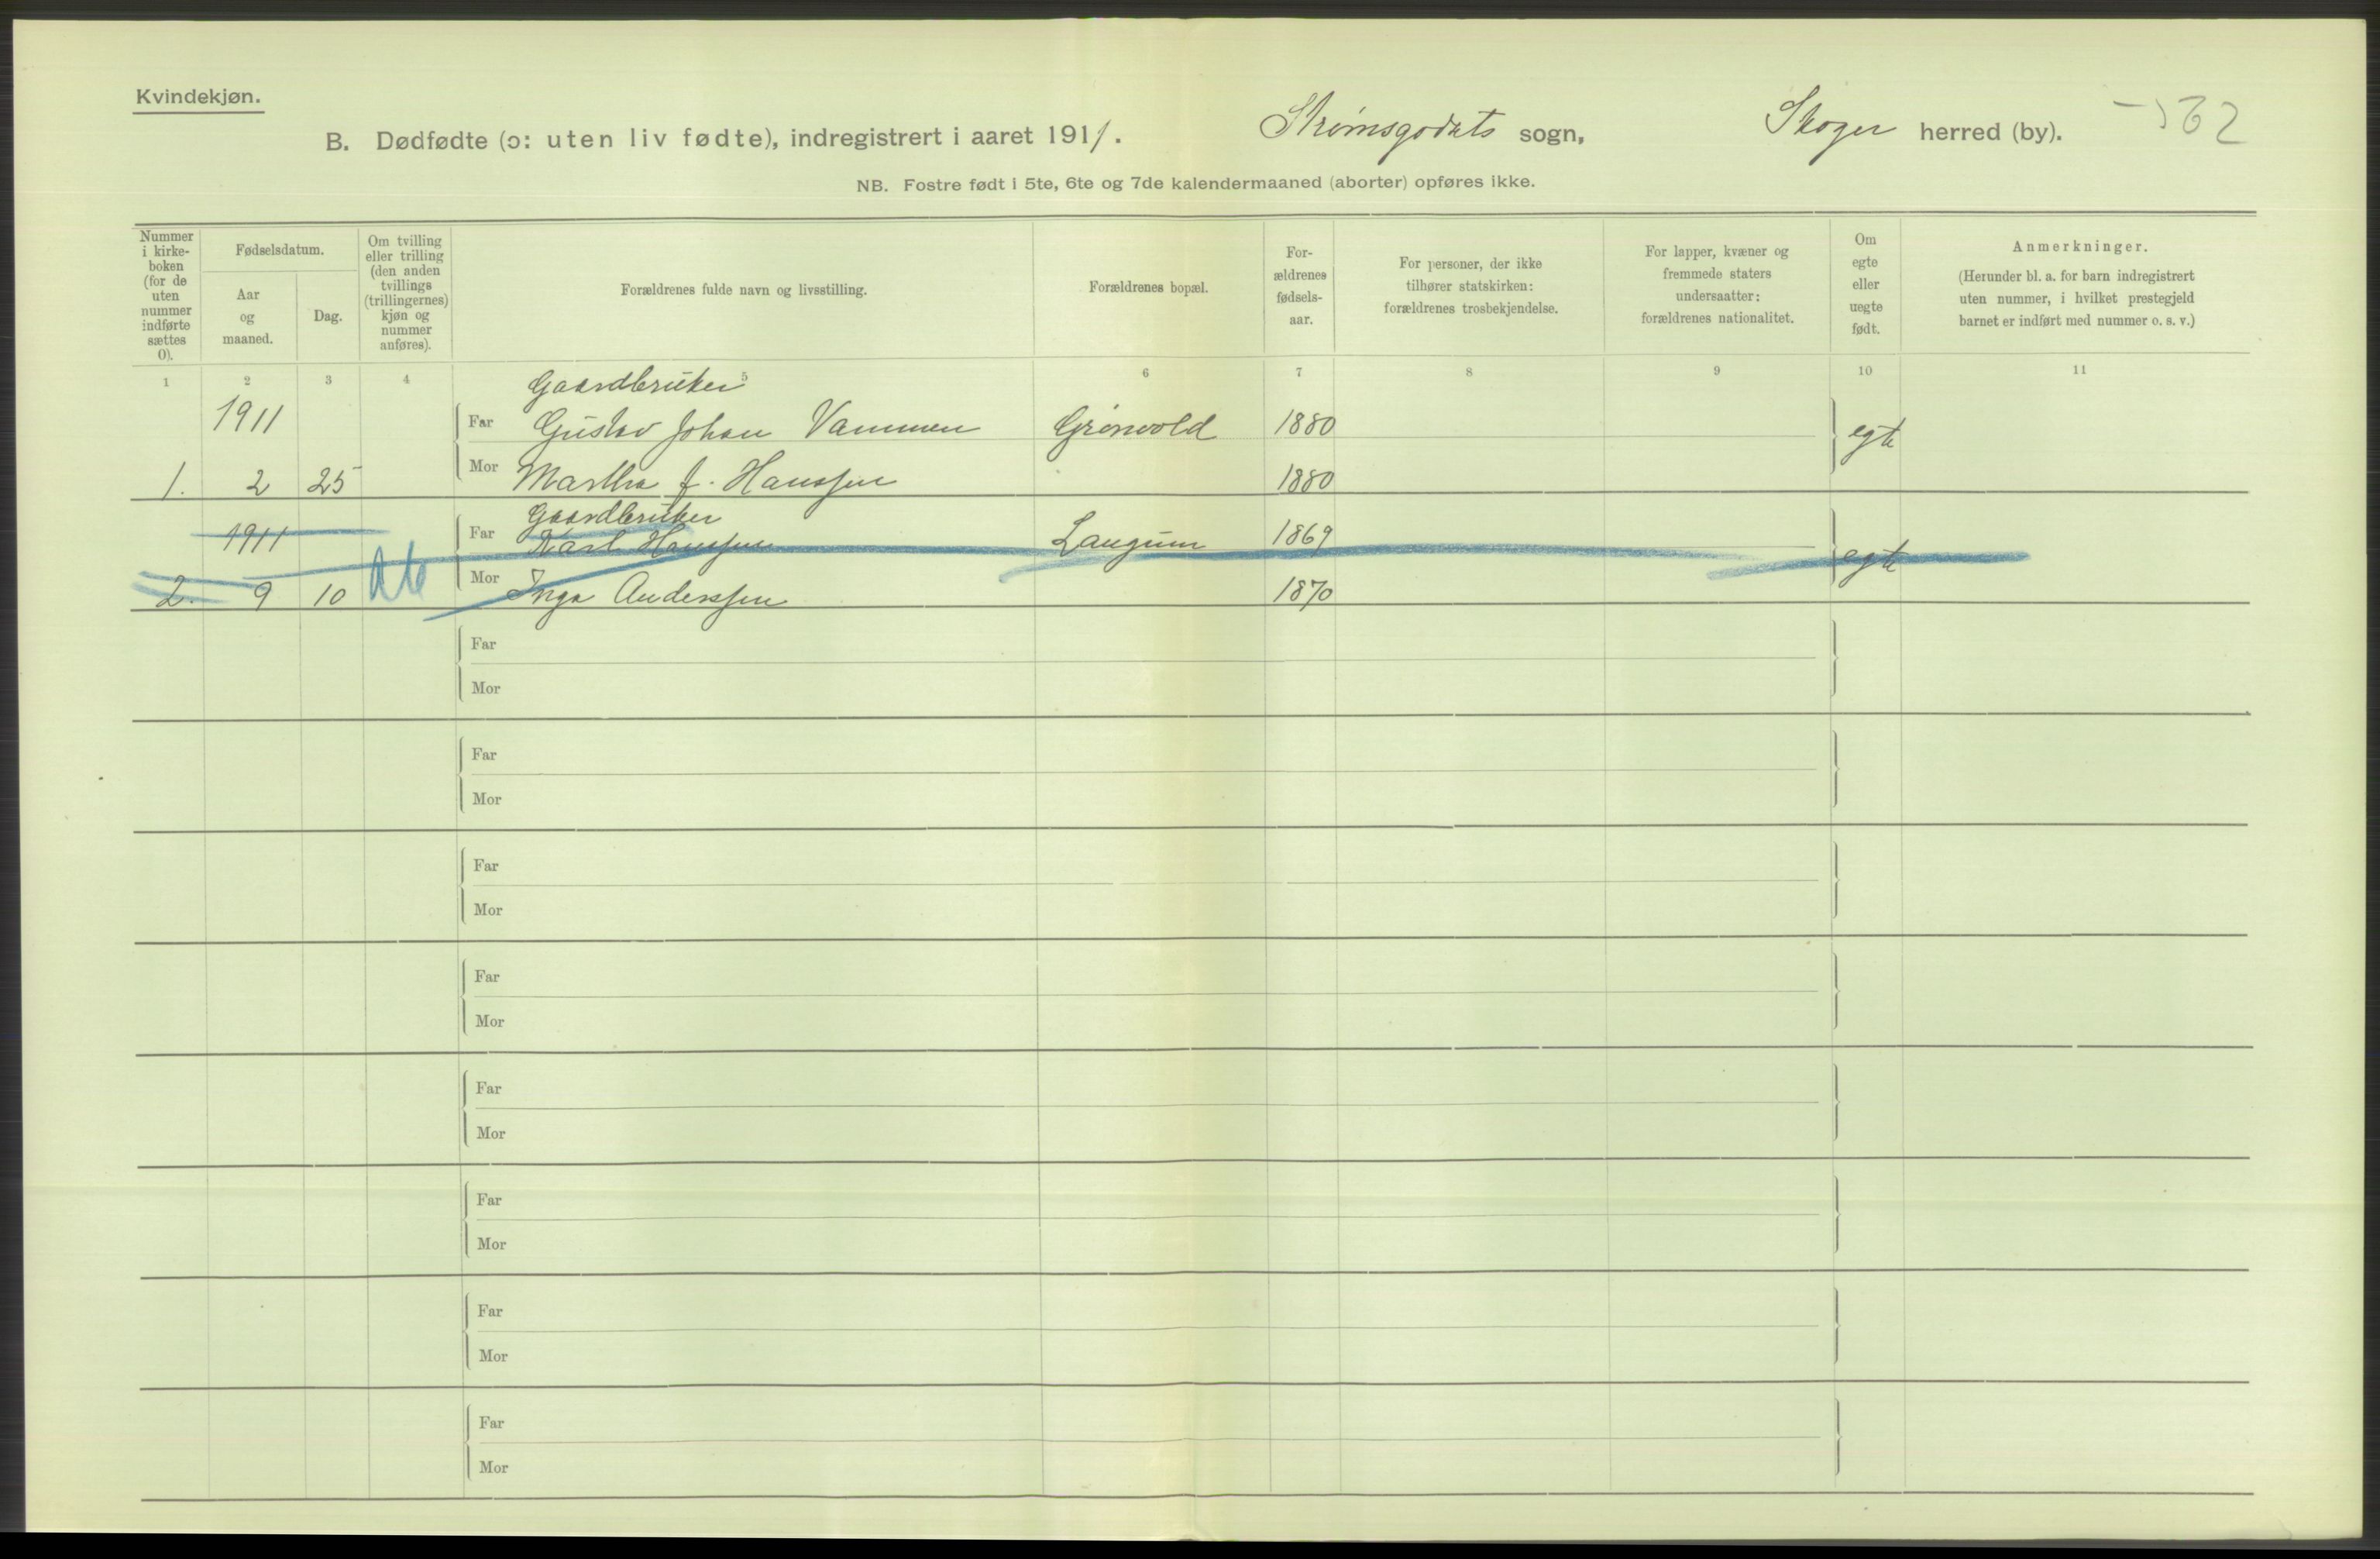 Kvindekjøn.
B. Dødfødte (ɔ: uten liv fødte), indregistrert i aaret 1911. Strømsgodets sogn, Skoger herred (by).
NB. Fostre født i 5te, 6te og 7de kalendermaaned (aborter) opføres ikke.
Nummer i kirke- boken (for de uten nummer indførte sættes 0).
Fødselsdatum.
Aar og maaned.
Dag.
Om tvilling eller trilling (den anden tvillings (trillingernes) kjøn og nummer anføres).
Forældrenes fulde navn og livsstilling.
Forældrenes bopæl.
For- ældrenes fødsels- aar.
For personer, der ikke tilhører statskirken: forældrenes trosbekjendelse.
For lapper, kvæner og fremmede staters undersaatter: forældrenes nationalitet.
Om egte eller uegte født.
Anmerkninger.
(Herunder bl. a. for barn indregistrert uten nummer, i hvilket prestegjeld barnet er indført med nummer o. s. v.)
1 2 3 4 5 6 7 8 9 10 11
Gaardbruker
1911 Far Gustav Johan Vammen Grønvold 1880 egte
1. 2 25 Mor Martha J. Hanssen 1880
Gaardbruker
1911 Far Karl Hanssen Langum 1869 egte
2. 9 10 Mor Inga Anderssen 1870
Far
Mor
Far
Mor
Far
Mor
Far
Mor
Far
Mor
Far
Mor
Far
Mor
Far
Mor